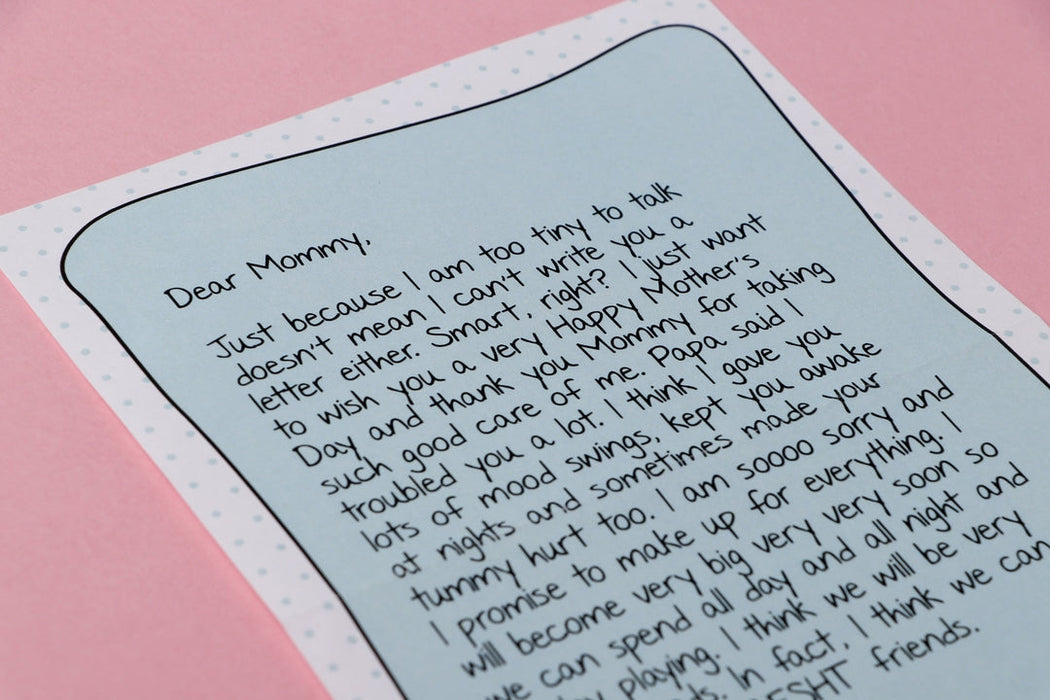 Dear Mommy,
Just because I am too tiny to talk
doesn't mean I can't write you a
letter either. Smart, right? I just want
to wish you a very Happy Mother's
Day and thank you Mommy for taking
such good care of me. Papa said I
troubled you a lot. I think I gave you
lots of mood swings, kept you awake
at nights and sometimes made your
tummy hurt too. I am soooo sorry and
I promise to make up for everything. I
will become very big very very soon so
we can spend all day and all night and
playing. I think we will be very
In fact, I think we can
friends.